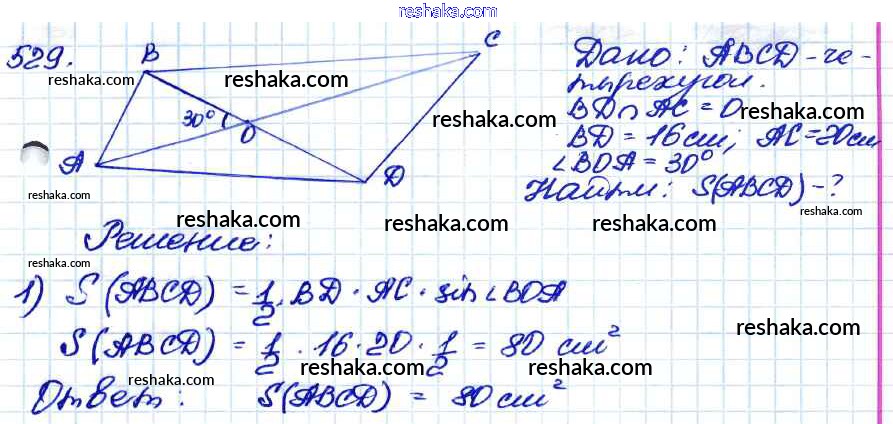 reshaka.com
529.
B
C
reshaka.com
reshaka.com
30°
O
reshaka.com
A
D
reshaka.com
Дано: ABCD - че-
тырехугол.
BD ∩ AC = O
reshaka.com
BD = 16 см; AC = 20 см
∠BOA = 30°
Найти: S(ABCD) - ?
reshaka.com
reshaka.com
reshaka.com
reshaka.com
Решение:
reshaka.com
reshaka.com
1) S(ABCD) = 1/2 · BD · AC · sin ∠BOA
reshaka.com
S(ABCD) = 1/2 · 16 · 20 · 1/2 = 80 см²
reshaka.com
reshaka.com
reshaka.com
reshaka.com
Ответ: S(ABCD) = 80 см²